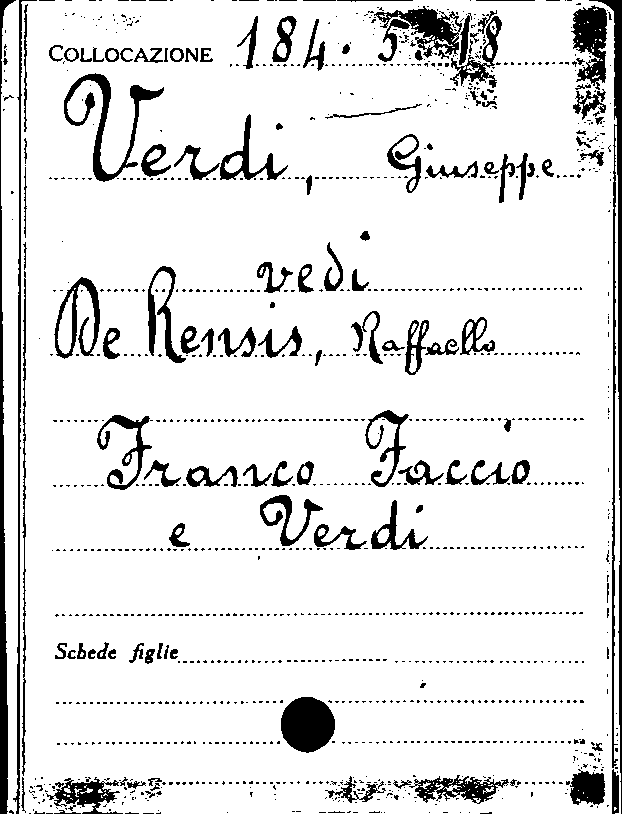 COLLOCAZIONE 184.5.18
Verdi, Giuseppe
vedi
De Rensis, Raffaello
Franco Faccio
e Verdi
Schede figlie